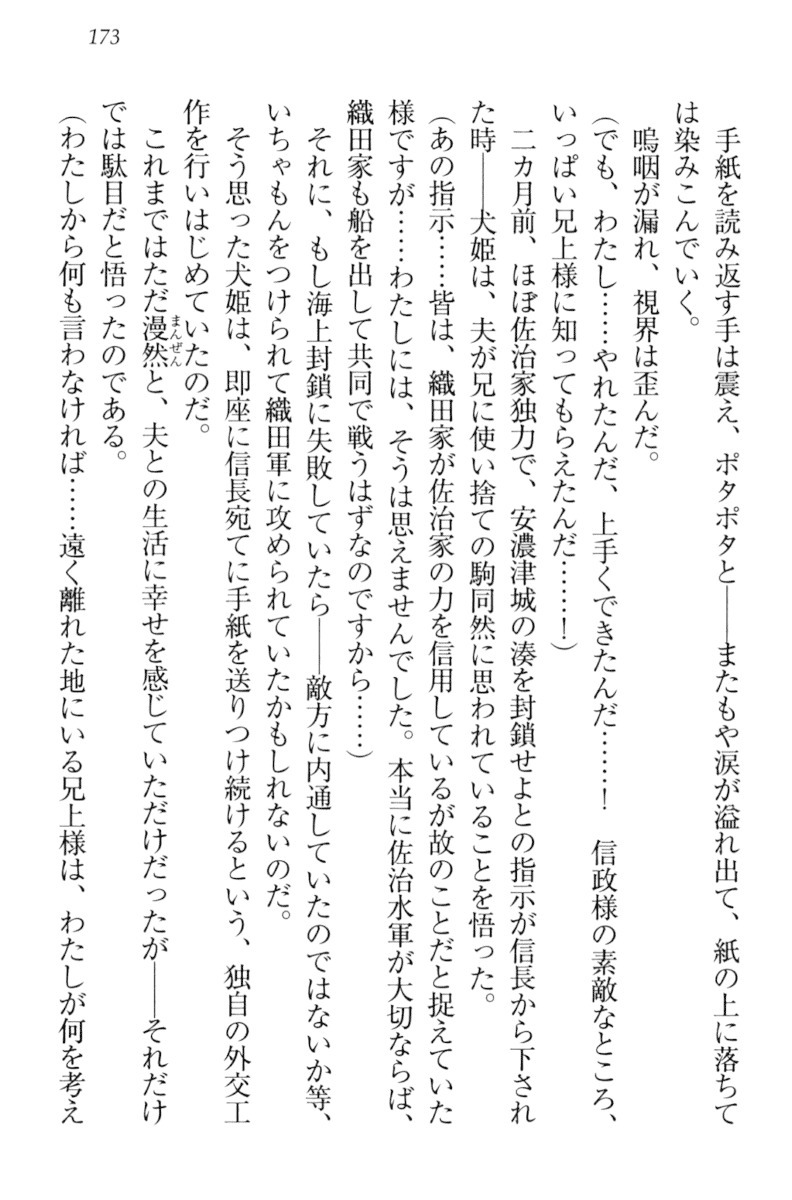 173
手紙を読み返す手は震え、ポタポタと――またもや涙が溢れ出て、紙の上に落ちて
は染みこんでいく。
嗚咽が漏れ、視界は歪んだ。
（でも、わたし……やれたんだ、上手くできたんだ……！　信政様の素敵なところ、
いっぱい兄上様に知ってもらえたんだ……！）
二カ月前、ほぼ佐治家独力で、安濃津城の湊を封鎖せよとの指示が信長から下され
た時――犬姫は、夫が兄に使い捨ての駒同然に思われていることを悟った。
（あの指示……皆は、織田家が佐治家の力を信用しているが故のことだと捉えていた
様ですが……わたしには、そうは思えませんでした。本当に佐治水軍が大切ならば、
織田家も船を出して共同で戦うはずなのですから……）
それに、もし海上封鎖に失敗していたら――敵方に内通していたのではないか等、
いちゃもんをつけられて織田軍に攻められていたかもしれないのだ。
そう思った犬姫は、即座に信長宛てに手紙を送りつけ続けるという、独自の外交工
作を行いはじめていたのだ。
これまではただ漫然まんぜんと、夫との生活に幸せを感じていただけだったが――それだけ
では駄目だと悟ったのである。
（わたしから何も言わなければ……遠く離れた地にいる兄上様は、わたしが何を考え